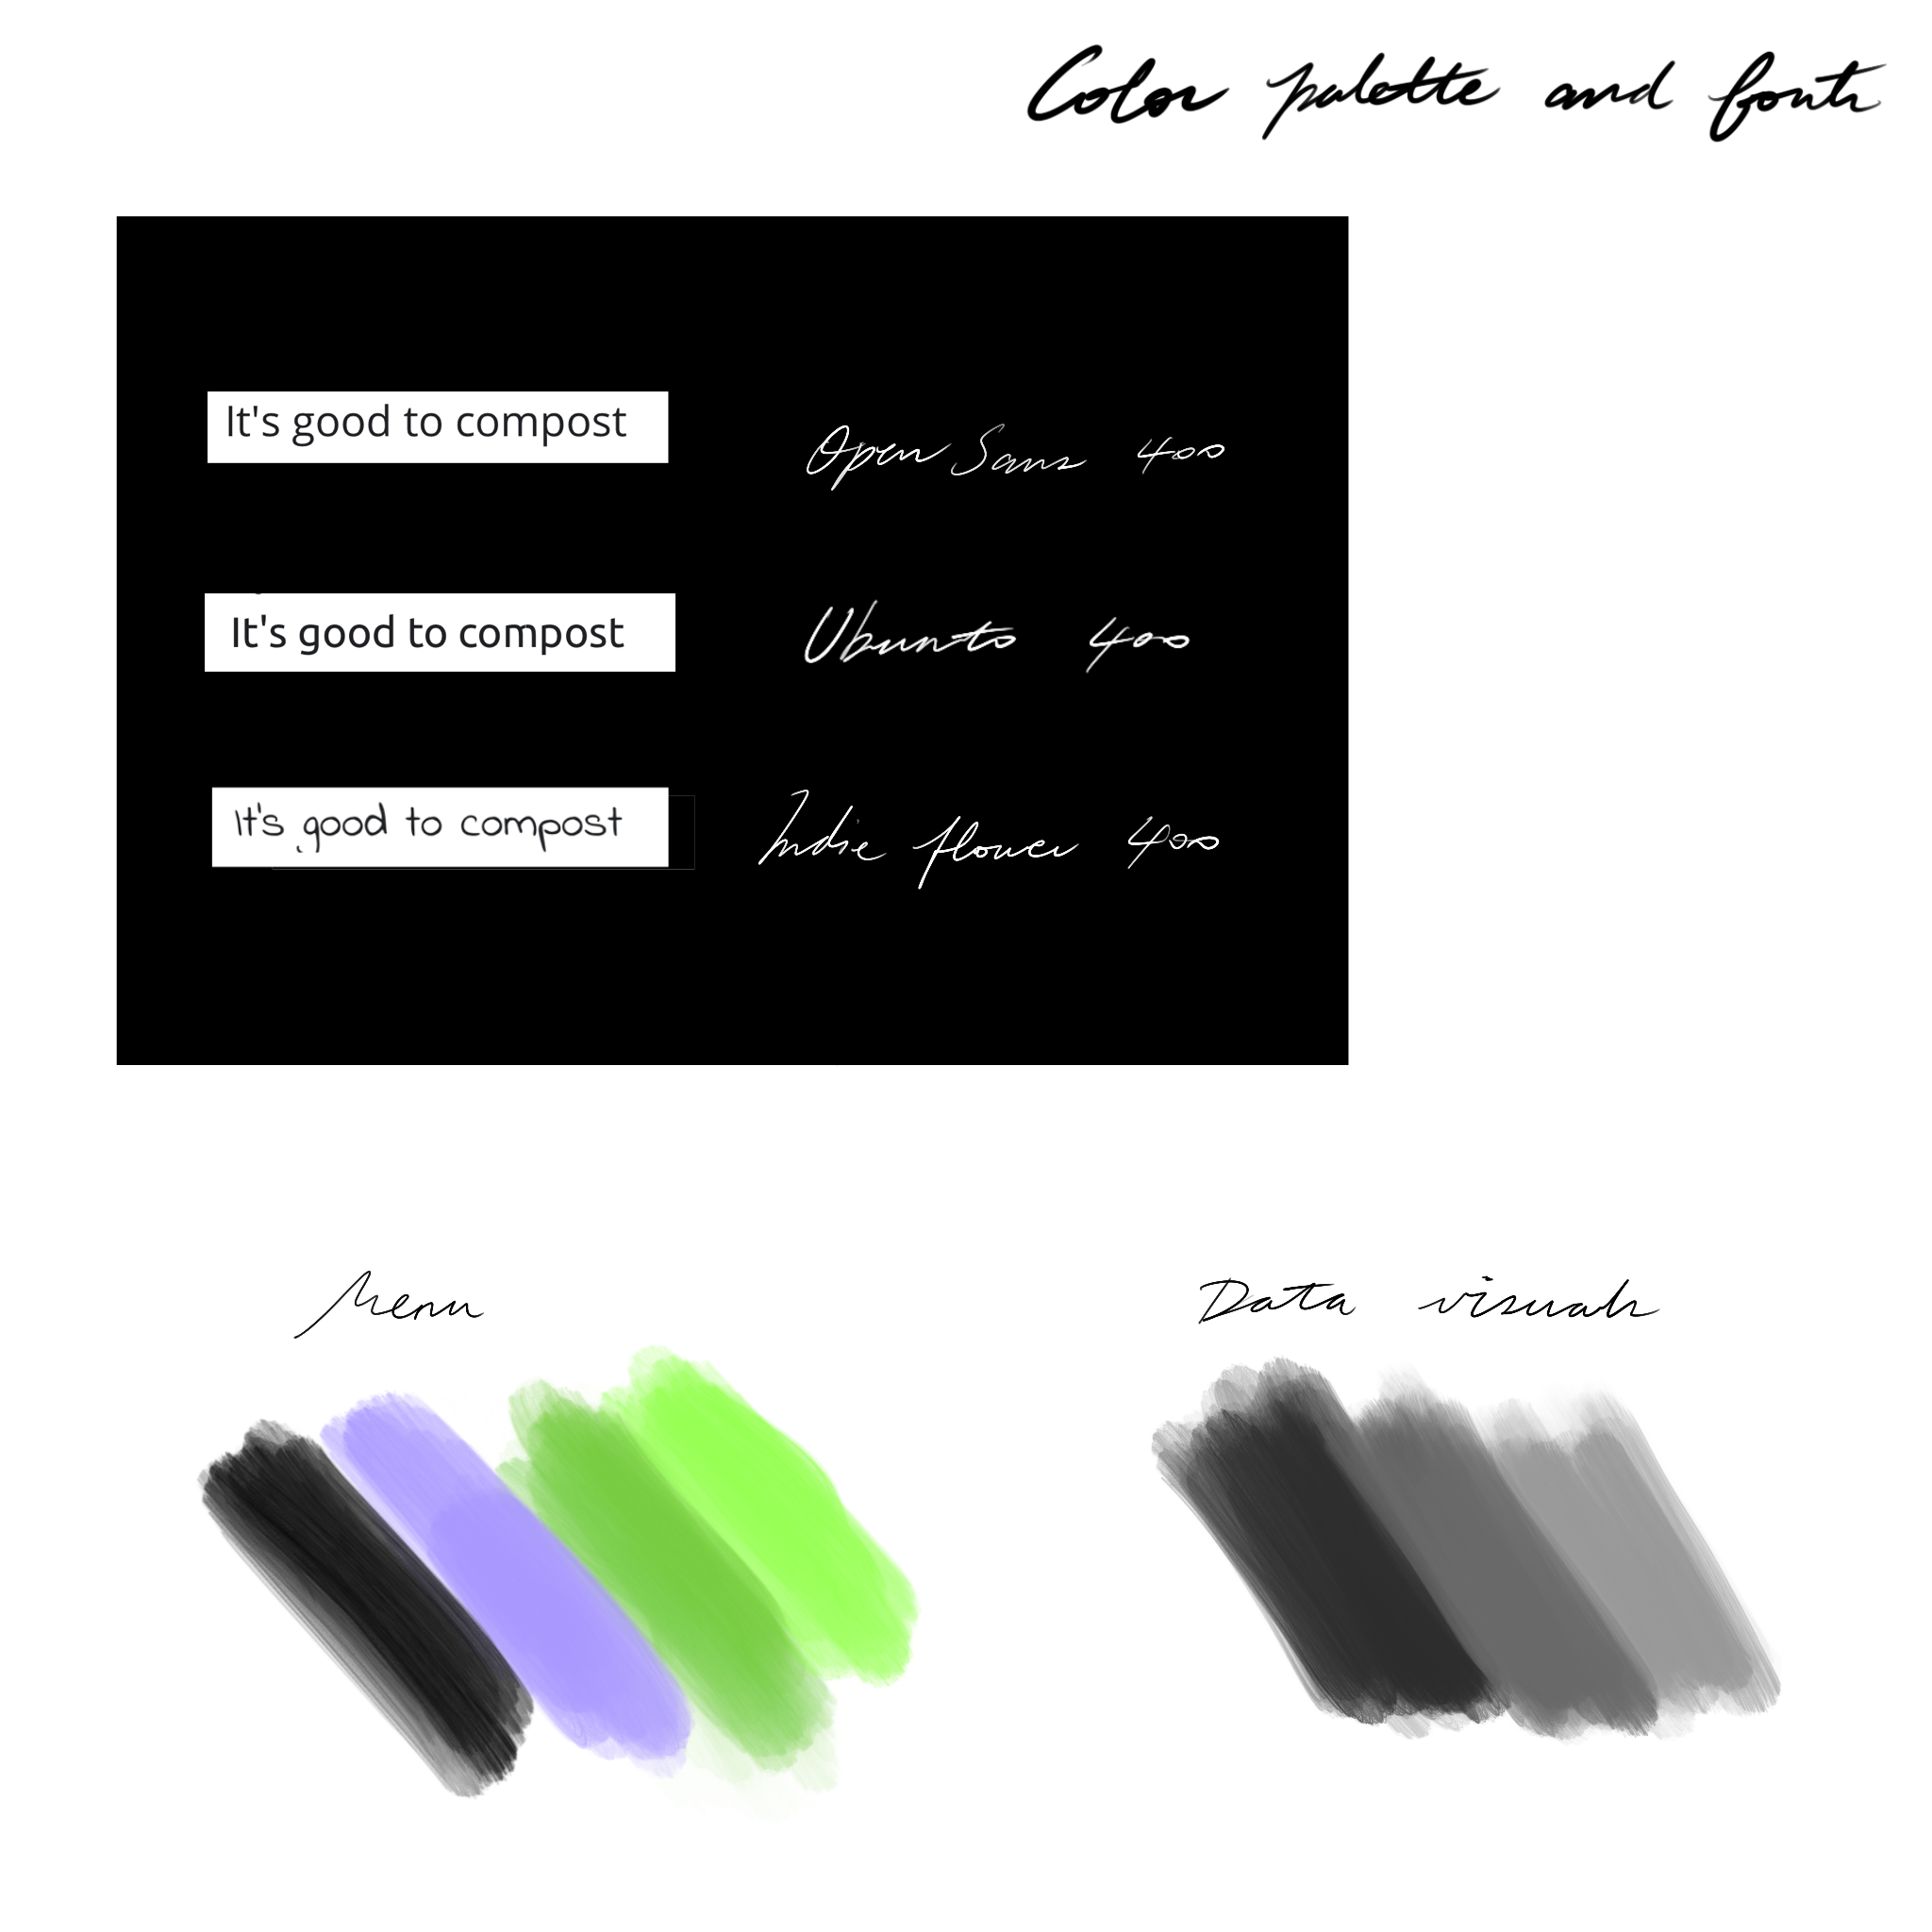 Color palette and fonts
It's good to compost
Open Sans 400
It's good to compost
Ubunto 400
It's good to compost
Indie flower 400
Menu
Data visuals